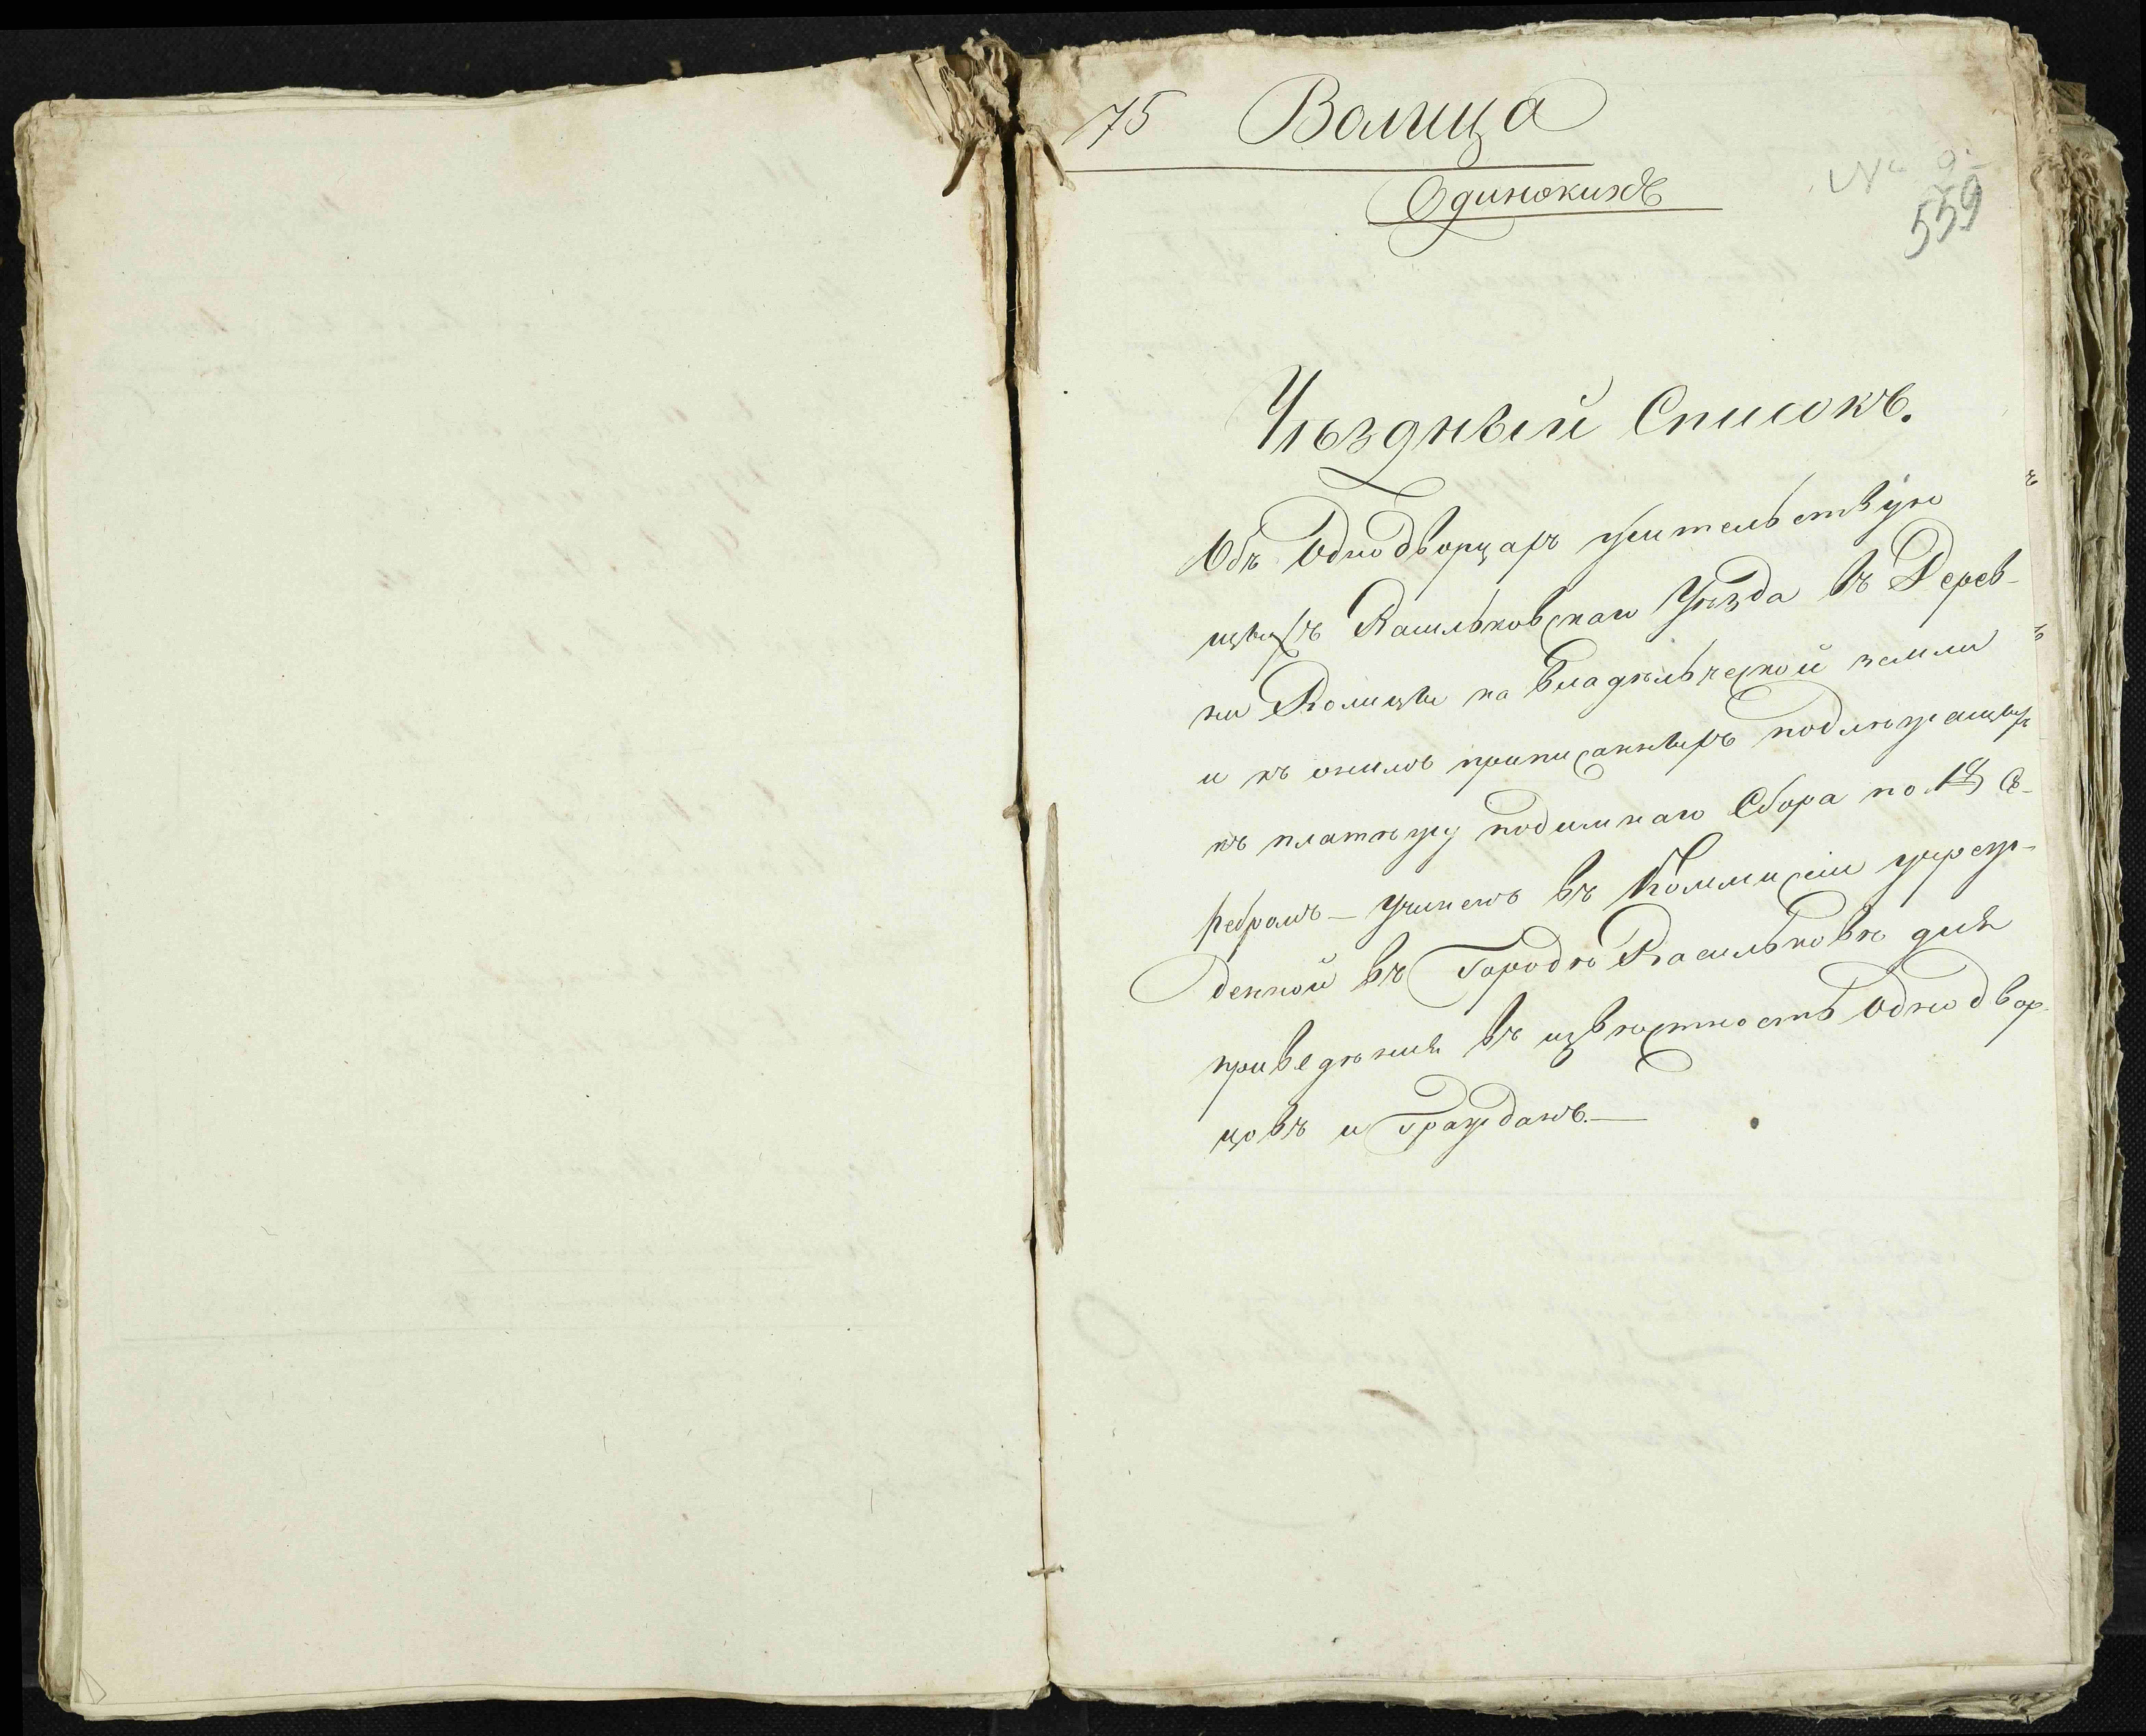 75 Волица
Одинокихъ
№ 9
559
Уѣздный Списокъ.
Объ Однодворцахъ жительствую
щихъ Васильковскаго Уѣзда въ Дерев-
ни Волицы на владѣльческой земли
и къ онымъ приписанныхъ подлежащихъ
къ платежу подымнаго Сбора по 18 се-
ребромъ — Учиненъ въ Коммисіи учреж-
денной въ Городѣ Васильковѣ для
приведѣнія въ извѣстность Однодвор-
цовъ и Гражданъ. —